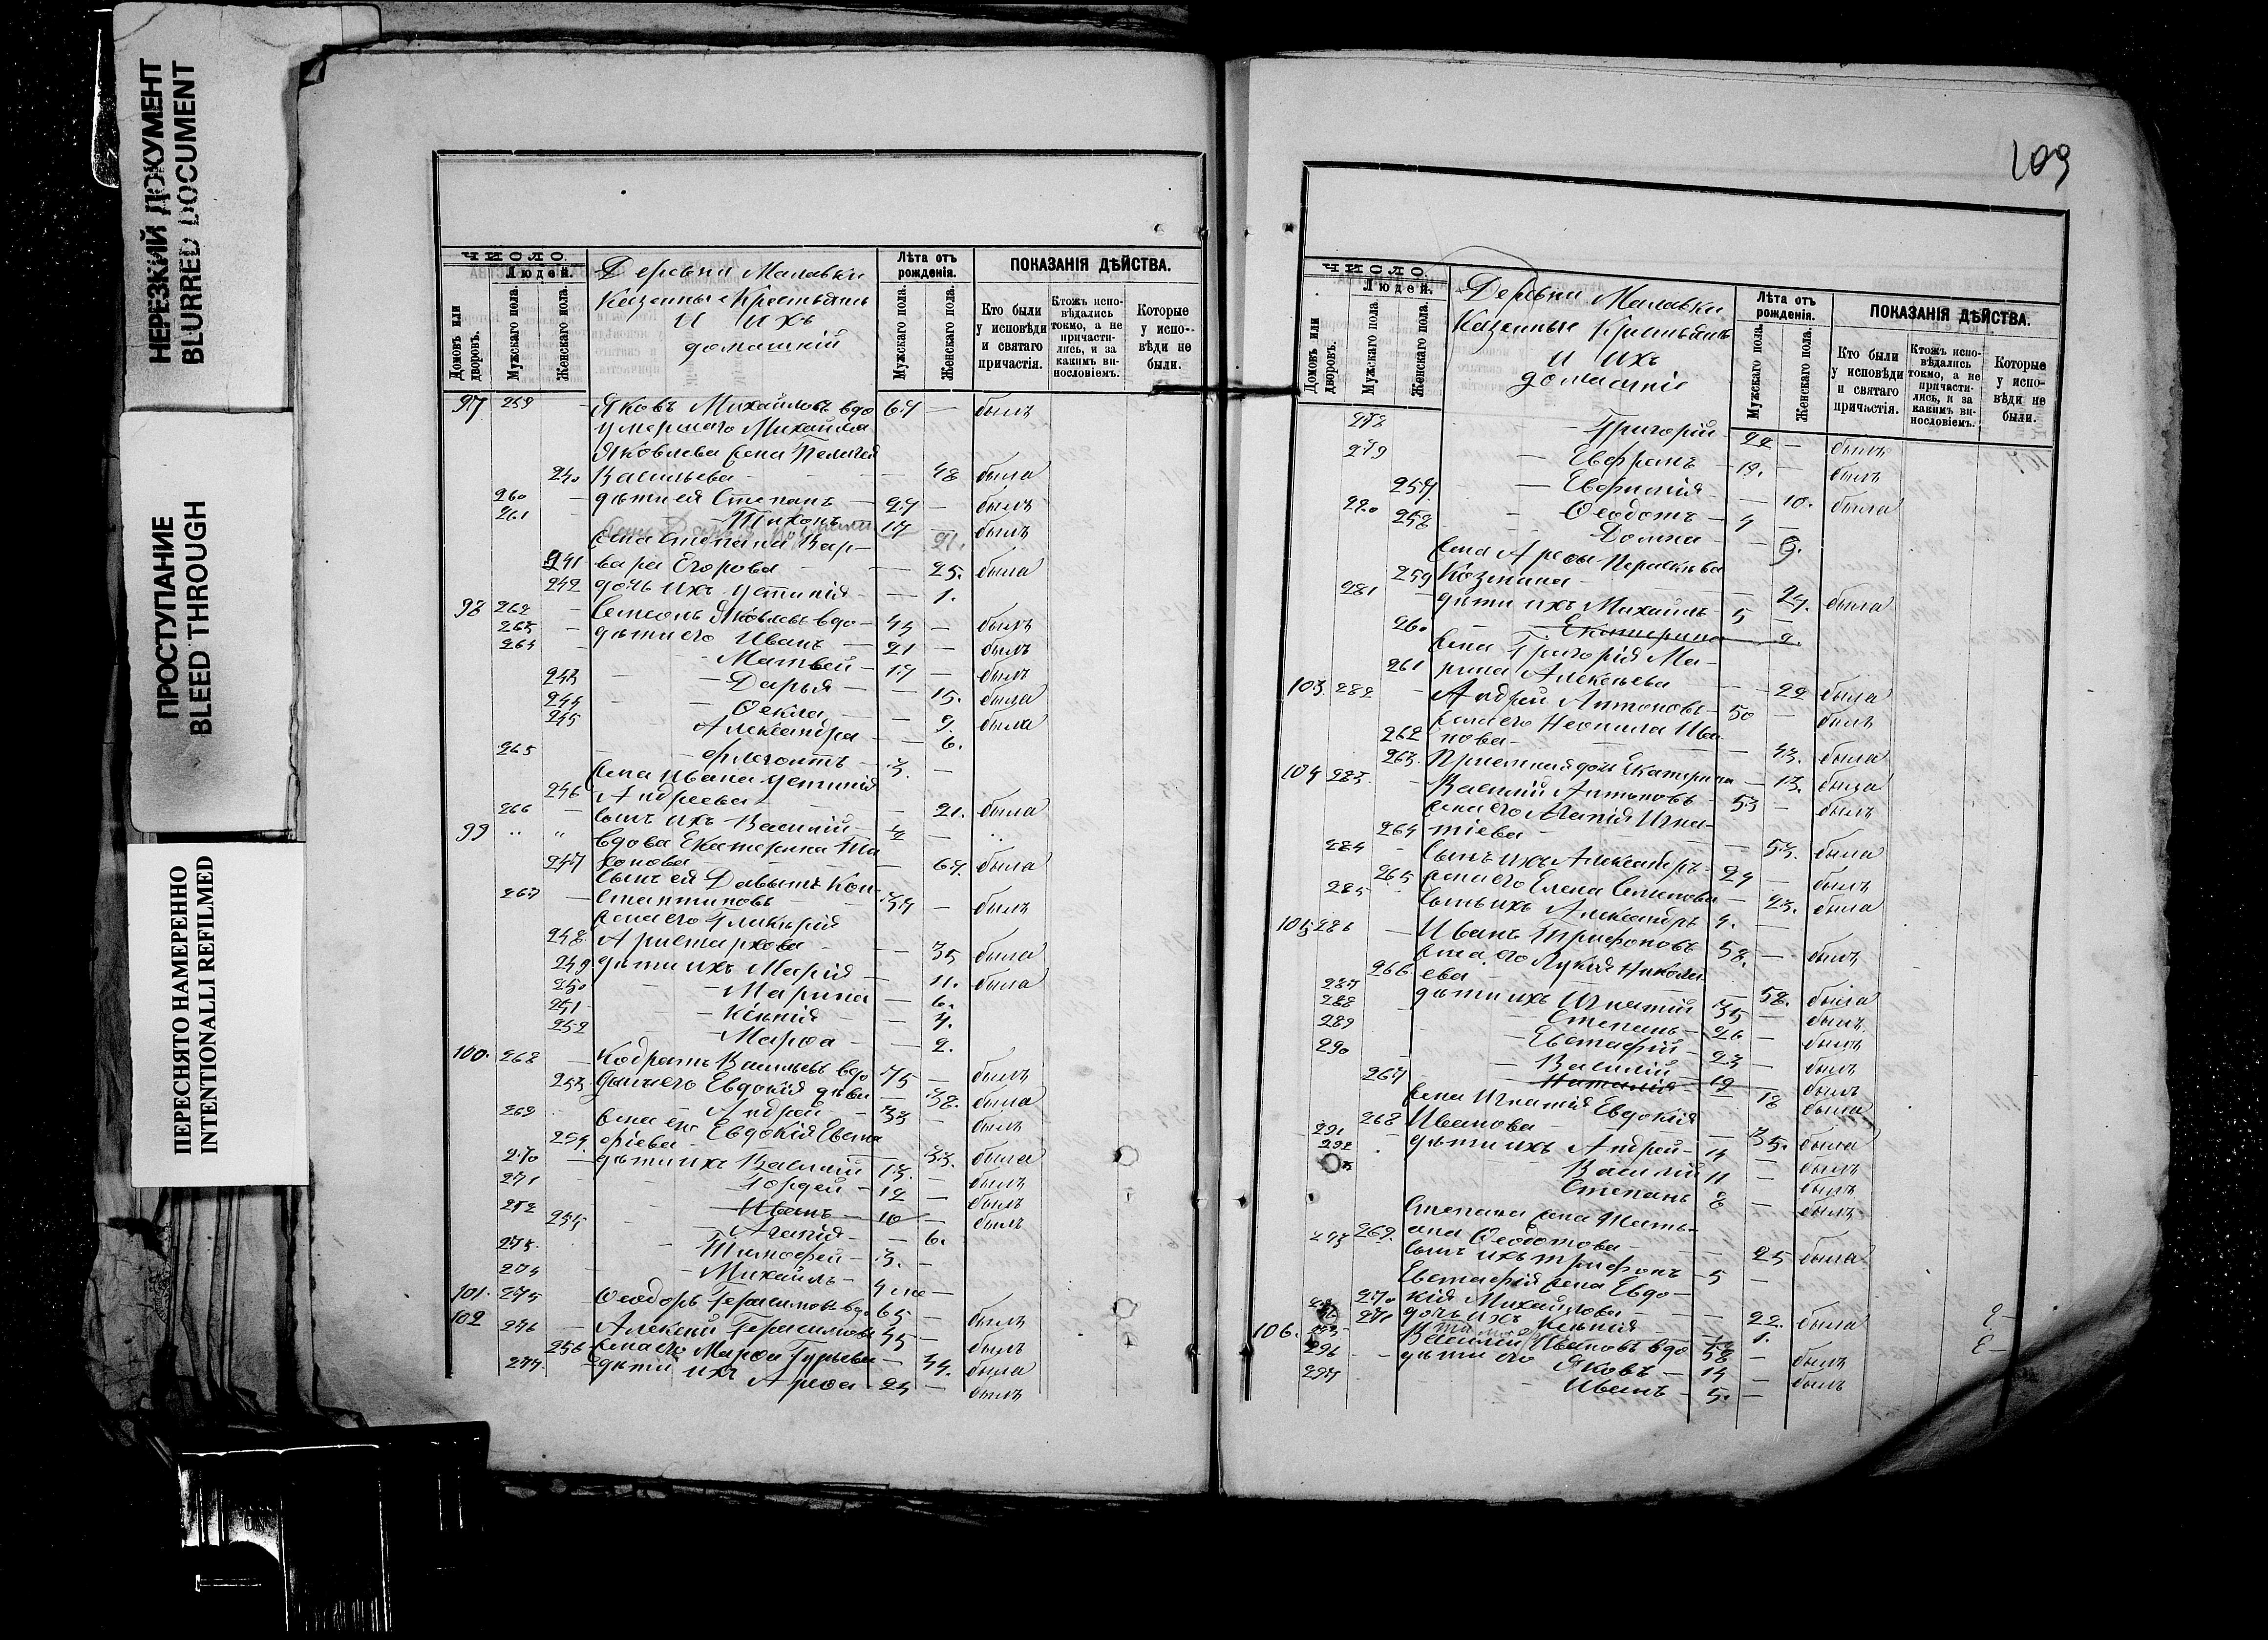 НЕРЕЗКИЙ ДОКУМЕНТ
BLURRED DOCUMENT
ПРОСТУПАНИЕ
BLEED THROUGH
ПЕРЕСНЯТО НАМЕРЕННО
INTENTIONALLI REFILMED
ЧИСЛО
Людей.
Домовъ или дворовъ.
Мужскаго пола.
Женскаго пола.
Деревни Малавки
Казенные Крестьяне
и ихъ
домашнiй
Лѣта отъ рожденія.
Мужскаго пола.
Женскаго пола.
ПОКАЗАНІЯ ДѢЙСТВА.
Кто были у исповѣди и святаго причастія.
Ктожъ исповѣдались токмо, а не причастились, и за какимъ винословіемъ.
Которые у исповѣди не были.
97 259 - Яковъ Михайловъ вдо 67 - былъ
умершаго Михаила
Яковлева жена Пелагея
240 Васильева - - 48 была
260 - дѣти ея Степанъ - 27 - былъ
261 - Тихонъ 17 - былъ
жена Степана Вар-
241 вара Егорова - - 25. была
242 дочь ихъ Устинія - - 1.
98 262 - Семенъ Яковлевъ вдо - 45 - былъ
263 - дѣти его Иванъ - 21 - былъ
264 - Матвей - 17 - былъ
243 - Дарья - - 15. была
244 - Ѳекла - - 9. была
245 - Александра - - 6.
265 - Флегонтъ - 3. -
жена Ивана Устинія
246 Андреева - - 21. была
266 - сынъ ихъ Василій - ½ -
99 " " вдова Екатерина Ти
247 хонова - - 67. была
сынъ ея Давыдъ Кон-
267 - стантиновъ - 34 - былъ
жена его Гликерія
248. Аристархова - - 35 была
249 дѣти ихъ Марія - - 11. была
250 - Марина - 6.
251 - Ксенія - 4.
252 - Марѳа - - 2.
100. 268 - Кодратъ Васильевъ вдо 75 - былъ
253 дочь его Евдокія дѣви - 38. была
269 - Андрей - 33 - былъ
жена его Евдокія Евста
254. фіева - - 33. была
270 - дѣти ихъ Василій 13. - былъ
271 - Гордей - 12 - былъ
272 - Иванъ - 10 - былъ
255 - Агапія - - 6.
273. - Тимофей - 3. -
274 - Михаилъ - 4 не -
101. 275 Ѳеодоръ Герасимовъ вдо 65 - былъ
102 276 - Алексѣй Герасимовъ 45 - былъ
256 жена его Марѳа Гурьева - 44. была
277. - дѣти ихъ Арефа - 25 - былъ
109
ЧИСЛО
Людей.
Домовъ или дворовъ.
Мужскаго пола.
Женскаго пола.
Деревни Малавки
Казенные Крестьяне
и ихъ
домашніе
Лѣта отъ рожденія.
Мужскаго пола.
Женскаго пола.
ПОКАЗАНІЯ ДѢЙСТВА.
Кто были у исповѣди и святаго причастія.
Ктожъ исповѣдались токмо, а не причастились, и за какимъ винословіемъ.
Которые у исповѣди не были.
278 - Григорій - 22 - былъ
279 - Евфрамъ - 19. - былъ
257. - Евфимія - - 10. была
280 - Ѳеодотъ - 7 -
258 - Домна - - 9.
жена Арефы Параскева
259 Козмина - - 27. была
281 - дѣти ихъ Михаилъ 5 -
260 - Екатерина - 2.
жена Григорія Ма-
261 рина Алексѣева - - 22 была
103. 282 - Андрей Антоновъ - 50 - былъ
жена его Неонила Ива
262 нова - - 43. была
263. Приемная дочь Екатерина - 13. была
104 283. - Василій Антоновъ - 53 - былъ
жена его Агапія Игна-
264 тіева - - 53. была
284 - сынъ ихъ Александръ - 24 - былъ
265 жена его Елена Семенова - 23. была
285 сынъ ихъ Александръ 4. -
105 286 - Иванъ Трифоновъ 58. - былъ
жена его Лукія Никола
266 ева - - 58. была
287 дѣти ихъ Игнатій 35 - былъ
288 - Степанъ - 26 - былъ
289 - Евстафій - 23 - былъ
290 - Василій - 19 - былъ
267 - Наталія - 18 была
жена Игнатія Евдокія
268 Иванова - - 35. была
291 дѣти ихъ Андрей - 14 - былъ
292 - Василій 11 - былъ
Степанъ 8 - былъ
Степана жена Тать-
269. яна Ѳеодотова - - 25 была
293 сынъ ихъ Трифонъ - 5 -
Евстафія жена Евдо-
270 кія Михайлова - - 22. была
271 дочь ихъ Ксенія - 1.
106. Василій Ивановъ вдо 38 - былъ
296 - дѣти его Яковъ - 14 - былъ
297 - Иванъ - 5. -